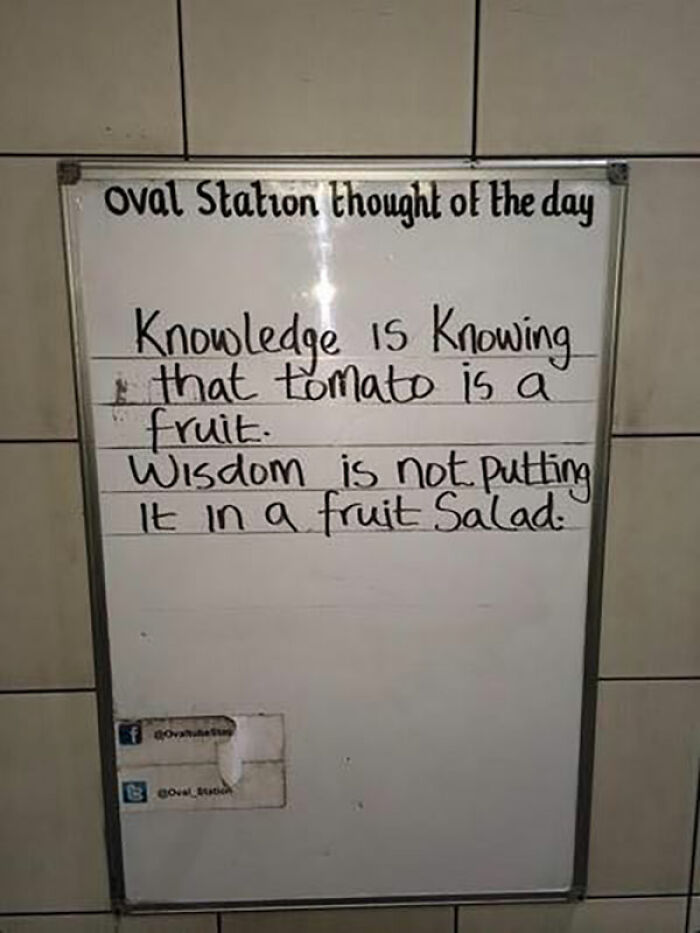 Oval Station thought of the day
Knowledge is Knowing
that tomato is a
fruit.
Wisdom is not putting
It in a fruit Salad.
f
@Oval_Station